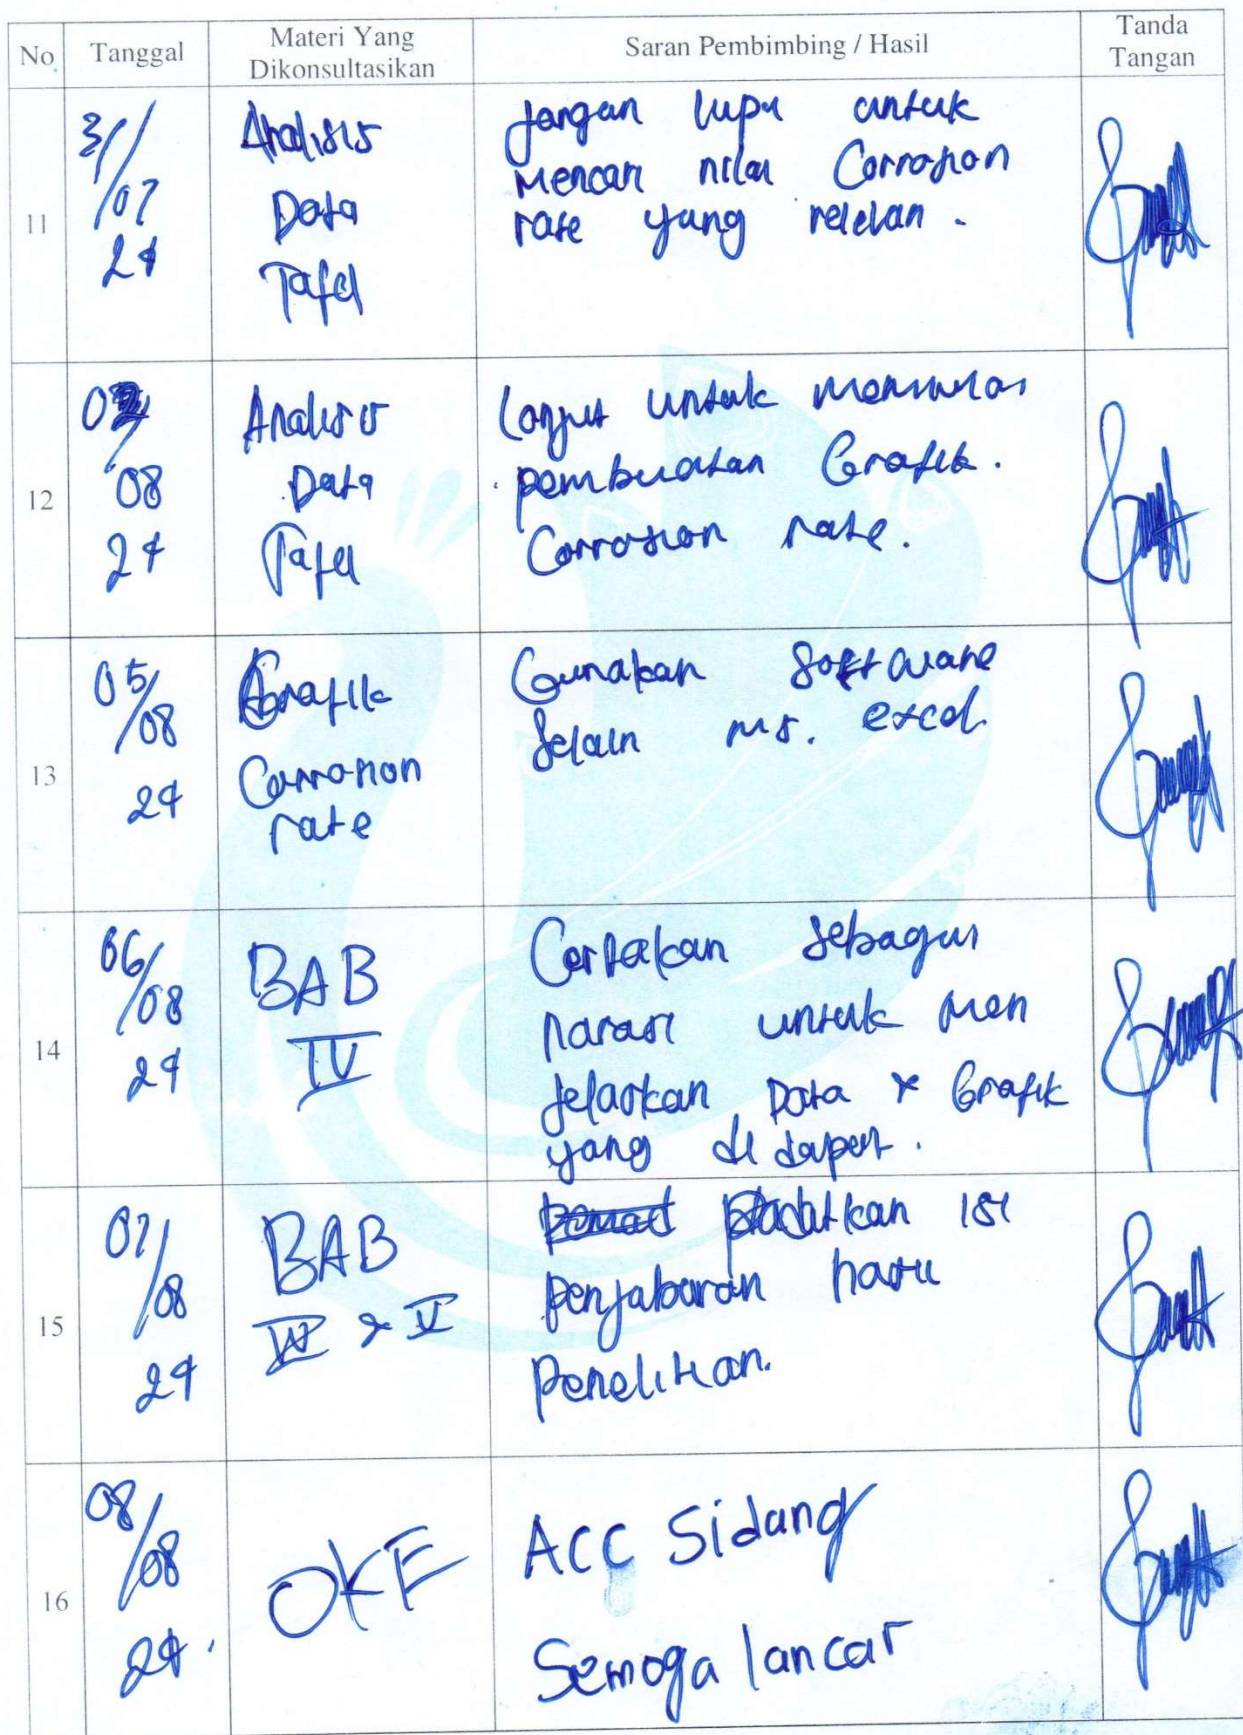 No Tanggal Materi Yang Dikonsultasikan Saran Pembimbing / Hasil Tanda Tangan
11
31/
/07
24
Analisis
Data
Tafel
Jangan lupa untuk
mencari nilai Corrosion
rate yang relevan.
12
08
24
Analisis
Data
Tafel
Lanjut untuk
pembuatan Grafik.
Corrosion rate.
13
05/
/08
24
Grafik
Corrosion
rate
Gunakan Software
Selain Ms. excel
14
06/
/08
24
BAB
IV
Ceritakan sebagus
narasi untuk men
jelaskan Data & Grafik
yang di dapat.
15
07/
/08
24
BAB
IV & V
padatkan isi
penjabaran hasil
Penelitian.
16
08/
/08
24.
OKE
ACC Sidang
Semoga lancar